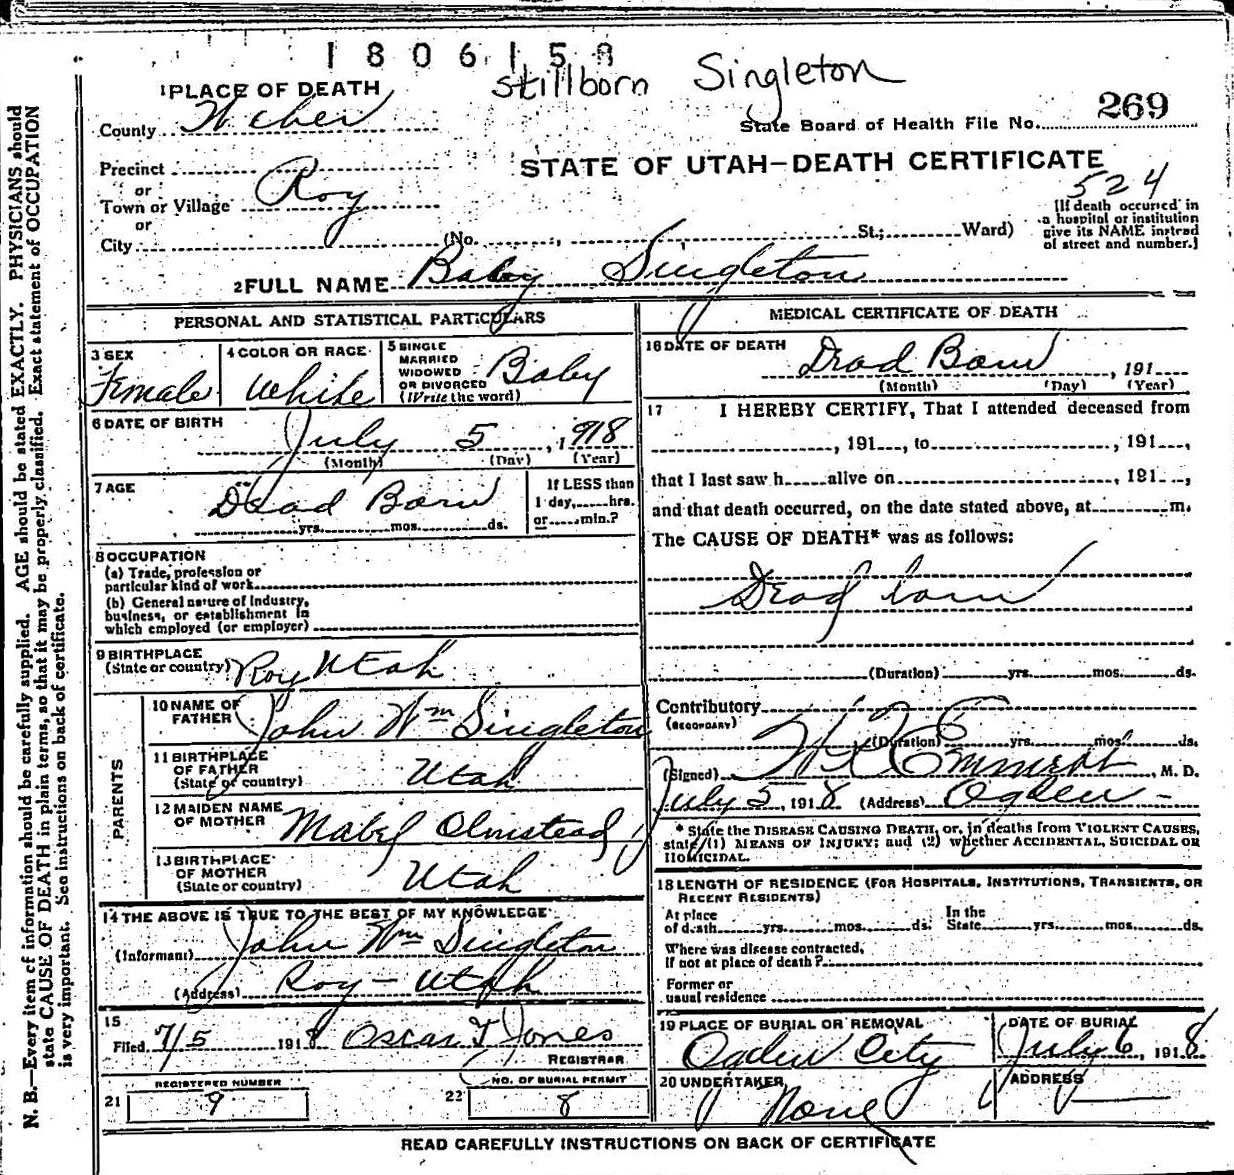 1806158
Stillborn Singleton
1 PLACE OF DEATH
County Weber
State Board of Health File No. 269
Precinct
or
Town or Village Roy
or
City (No. , St.; Ward)
STATE OF UTAH—DEATH CERTIFICATE
524
[If death occurred in
a hospital or institution
give its NAME instead
of street and number.]
2 FULL NAME Baby Singleton
PERSONAL AND STATISTICAL PARTICULARS
3 SEX
Female
4 COLOR OR RACE
White
5 SINGLE
MARRIED
WIDOWED
OR DIVORCED
(Write the word)
Baby
6 DATE OF BIRTH
July 5, 1918
(Month) (Day) (Year)
7 AGE
Dead Born
yrs. mos. ds.
If LESS than
1 day, hrs.
or min.?
8 OCCUPATION
(a) Trade, profession or
particular kind of work
(b) General nature of Industry,
business, or establishment in
which employed (or employer)
9 BIRTHPLACE
(State or country) Roy Utah
PARENTS
10 NAME OF
FATHER John Wm Singleton
11 BIRTHPLACE
OF FATHER
(State or country) Utah
12 MAIDEN NAME
OF MOTHER Mabel Olmstead
13 BIRTHPLACE
OF MOTHER
(State or country) Utah
14 THE ABOVE IS TRUE TO THE BEST OF MY KNOWLEDGE
(Informant) John Wm Singleton
(Address) Roy - Utah
15
Filed 7/5 1918 Oscar T Jones
REGISTRAR
REGISTERED NUMBER
21 9
NO. OF BURIAL PERMIT
22 8
MEDICAL CERTIFICATE OF DEATH
16 DATE OF DEATH
Dead Born, 191
(Month) (Day) (Year)
17 I HEREBY CERTIFY, That I attended deceased from
, 191 , to , 191 ,
that I last saw h alive on , 191 ,
and that death occurred, on the date stated above, at m.
The CAUSE OF DEATH* was as follows:
Dead born
(Duration) yrs. mos. ds.
Contributory
(SECONDARY)
(Duration) yrs. mos. ds.
(Signed) Emmett, M. D.
July 5, 1918 (Address) Ogden -
* State the DISEASE CAUSING DEATH, or, in deaths from VIOLENT CAUSES,
state (1) MEANS OF INJURY; and (2) whether ACCIDENTAL, SUICIDAL OR
HOMICIDAL.
18 LENGTH OF RESIDENCE (FOR HOSPITALS, INSTITUTIONS, TRANSIENTS, OR
RECENT RESIDENTS)
At place
of death yrs. mos. ds.
In the
State yrs. mos. ds.
Where was disease contracted,
If not at place of death?
Former or
usual residence
19 PLACE OF BURIAL OR REMOVAL
Ogden City
DATE OF BURIAL
July 6, 1918
20 UNDERTAKER
None
ADDRESS
READ CAREFULLY INSTRUCTIONS ON BACK OF CERTIFICATE
N. B.—Every item of information should be carefully supplied. AGE should be stated EXACTLY. PHYSICIANS should
state CAUSE OF DEATH in plain terms, so that it may be properly classified. Exact statement of OCCUPATION
is very important. See instructions on back of certificate.